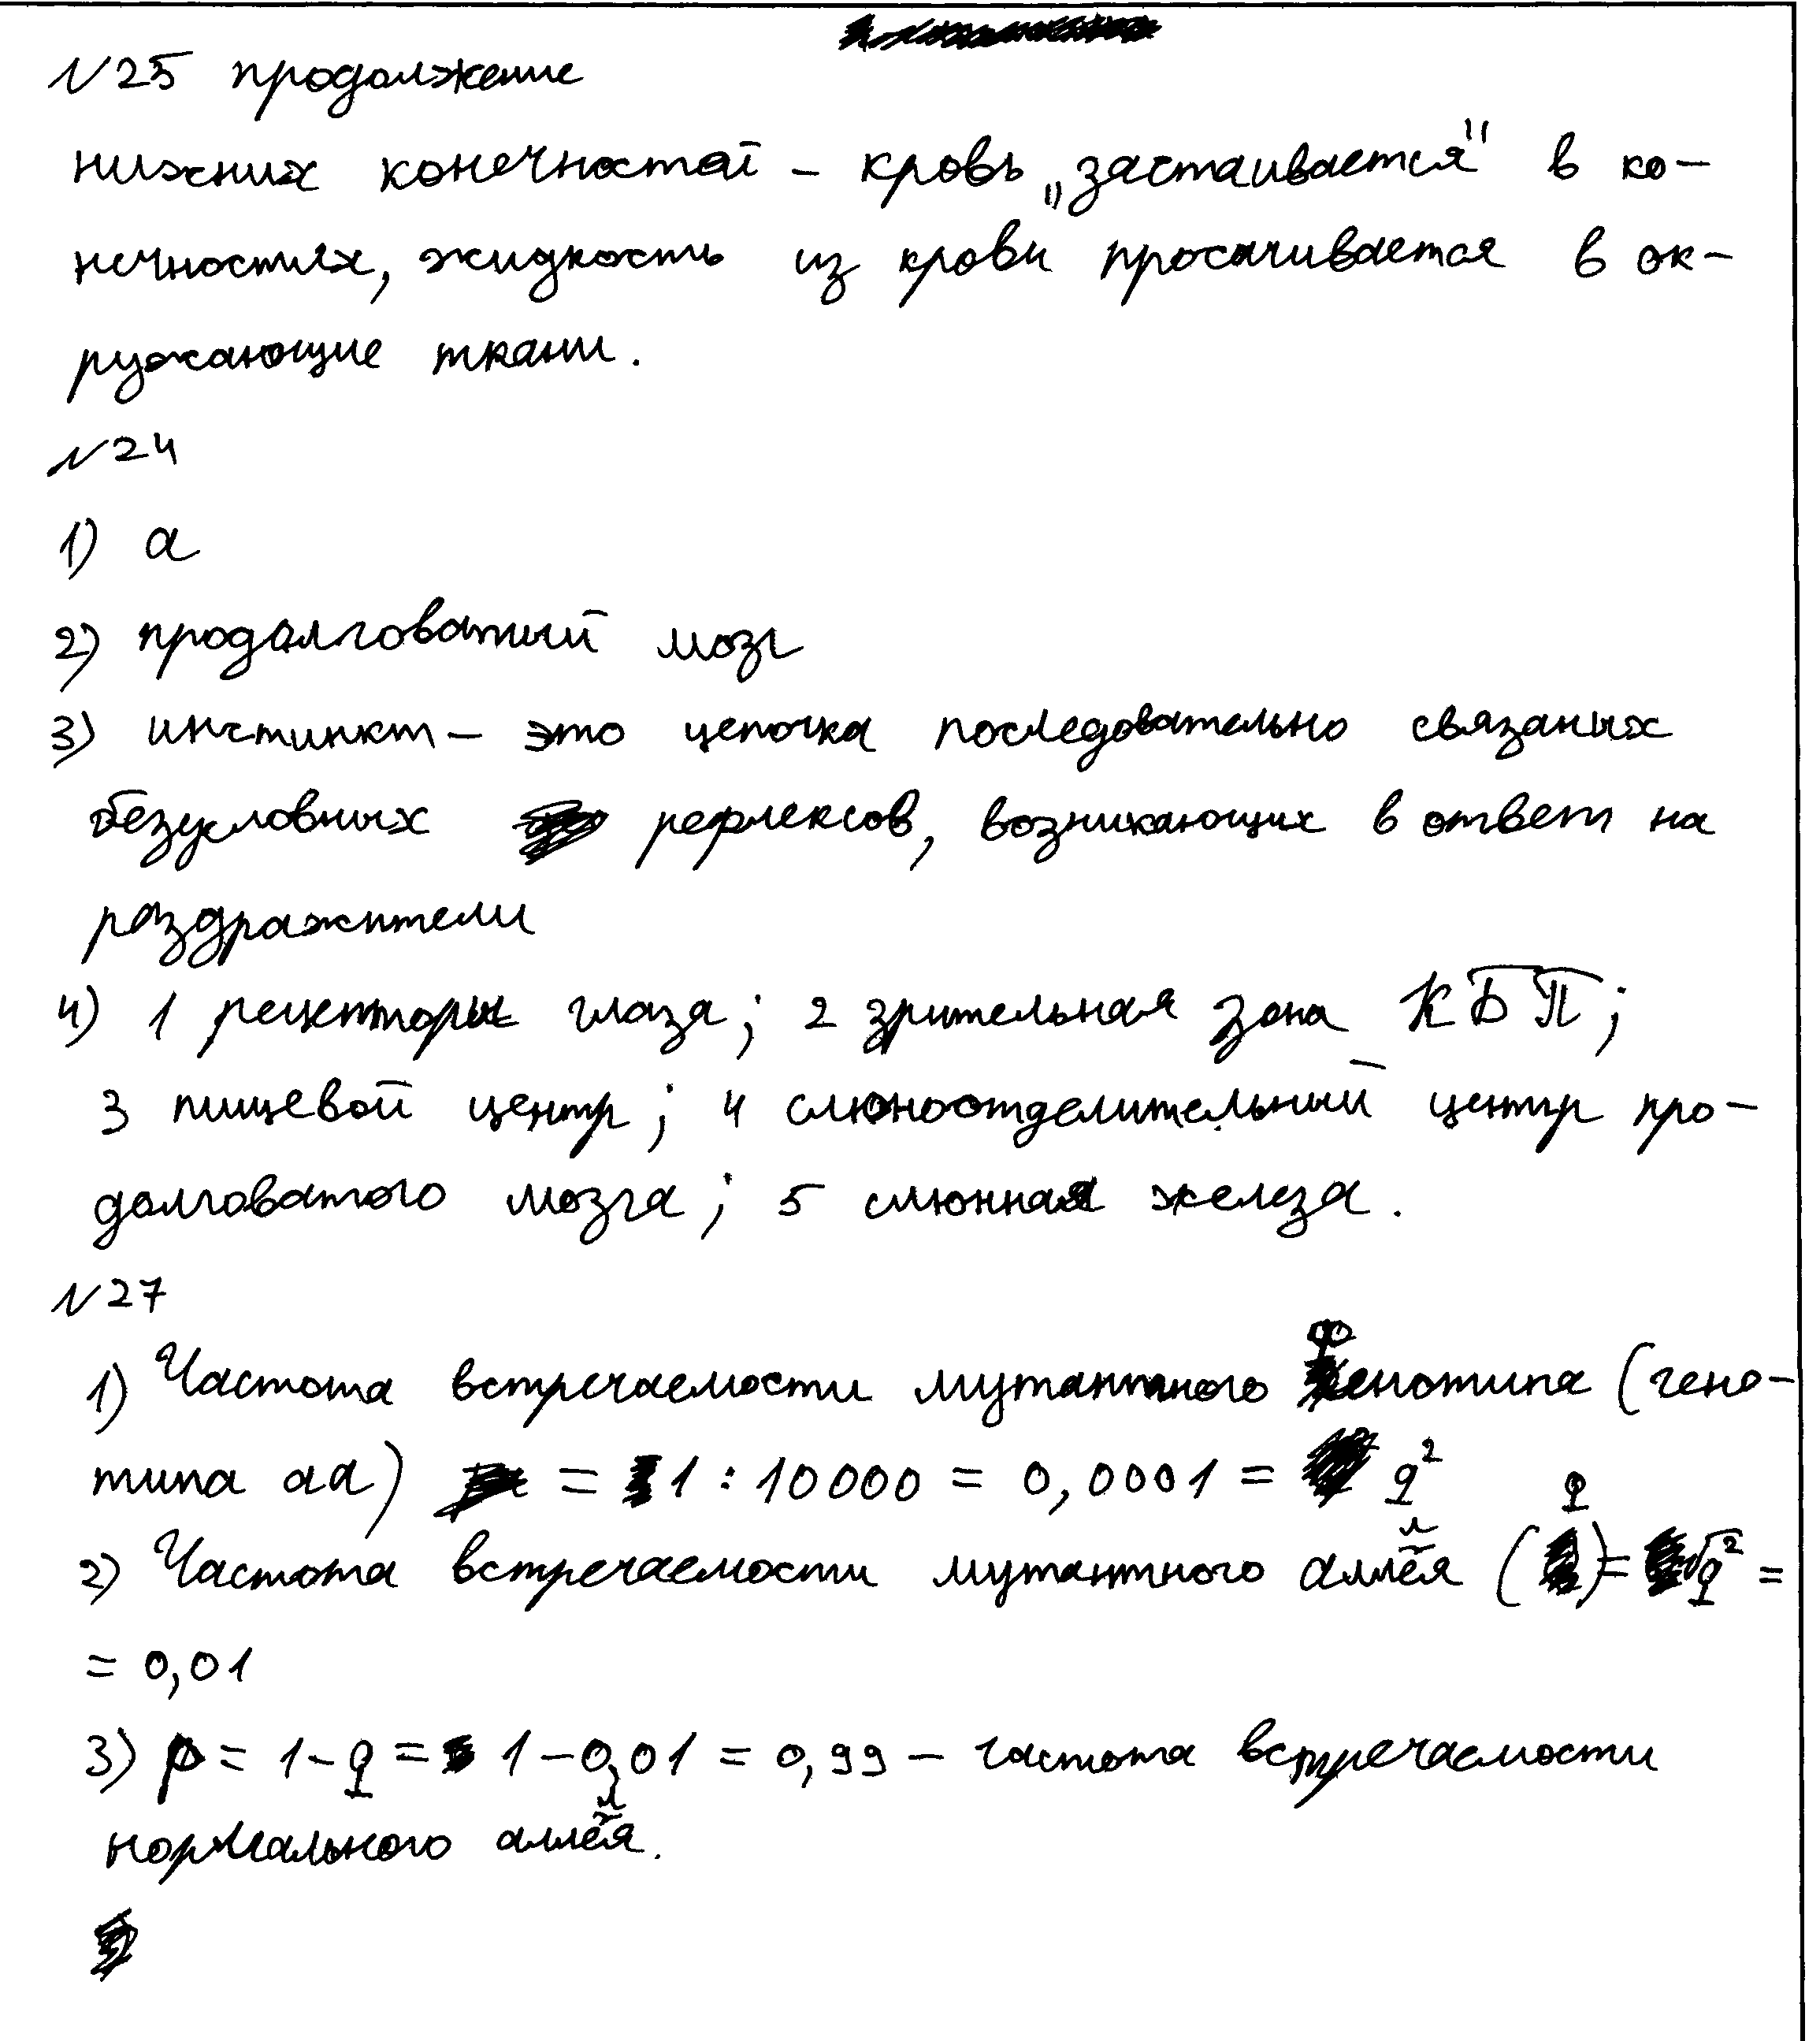 №25 продолжение
нижних конечностей – кровь „застаивается" в ко-
нечностях, жидкость из крови просачивается в ок-
ружающие ткани.
№24
1) а
2) продолговатый мозг
3) инстинкт – это цепочка последовательно связаных
безусловных рефлексов, возникающих в ответ на
раздражители
4) 1 рецепторы глаза; 2 зрительная зона КБП;
3 пищевой центр; 4 слюноотделительный центр про-
долговатого мозга; 5 слюнная железа.
№27
1) Частота встречаемости мутантного фенотипа (гено-
типа аа) = 1 : 10000 = 0,0001 = q²
2) Частота встречаемости мутантного аллеля (q) = √q² =
= 0,01
3) p = 1 – q = 1 – 0,01 = 0,99 – частота встречаемости
нормального аллеля.